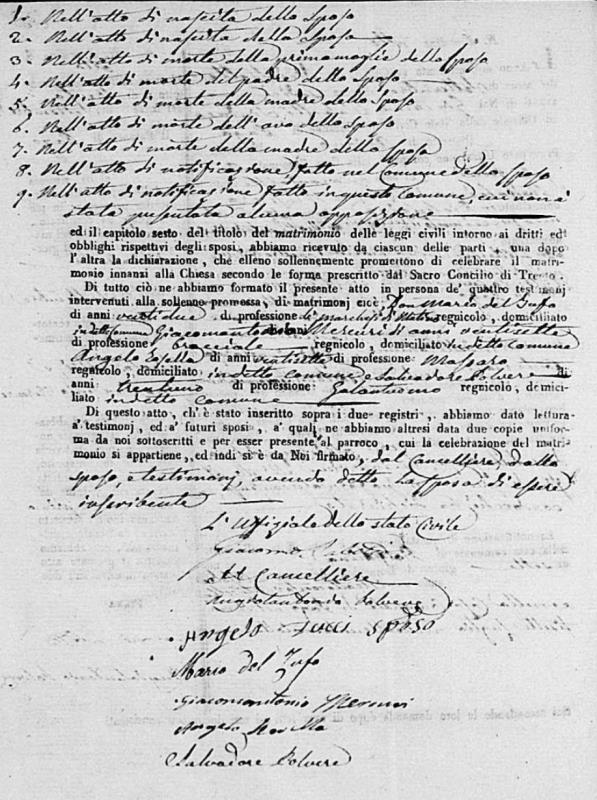 1. Nell'atto di nascita dello Sposo
2. Nell'atto di nascita della Sposa
3. Nell'atto di morte della prima moglie dello Sposo
4. Nell'atto di morte del padre dello Sposo
5. Nell'atto di morte della madre dello Sposo
6. Nell'atto di morte dell'avo dello Sposo
7. Nell'atto di morte della madre dello Sposo
8. Nell'atto di notificazione fatto nel Comune dello Sposo
9. Nell'atto di notificazione fatto in questo Comune, cui non è
stata presentata alcuna opposizione
ed il capitolo sesto del titolo del matrimonio delle leggi civili intorno ai dritti ed
obblighi rispettivi degli sposi, abbiamo ricevuto da ciascun delle parti, una dopo
l'altra la dichiarazione, che elleno sollennemente promettono di celebrare il matri-
monio innanzi alla Chiesa secondo le forme prescritto dal Sacro Concilio di Trento.
Di tutto ciò ne abbiamo formato il presente atto in persona de' quattro testimonj
intervenuti alla sollenne promessa, di matrimonj cioè, Don Mario del Tufo
di anni ventidue di professione di marchesi di Matino regnicolo, domiciliato
in detto comune Giacomantonio Mercuri di anni ventisette
di professione bracciale regnicolo, domiciliato in detto Comune
Angelo di anni ventisette di professione Massaro
regnicolo, domiciliato in detto comune e Salvadore Polvere di
anni trentuno di professione Galantuomo regnicolo, domici-
liato in detto comune
Di questo atto, ch'è stato inseritto sopra i due registri, abbiamo dato lettura
a' testimonj, ed a' futuri sposi, a' quali ne abbiamo altresì data due copie unifor-
ma da noi sottoscritti e per esser presente al parroco, cui la celebrazione del matri-
monio si appartiene, ed indi si è da Noi firmato, dal Cancelliere, dallo
sposo, e testimonj, avendo detto la sposa di essere
inscribente
L'Uffiziale dello stato Civile
Giacomo
Il Cancelliere
Angelantonio Polvere
Angelo Iucci sposo
Mario del Tufo
Giacomantonio Mercuri
Angelo
Salvadore Polvere